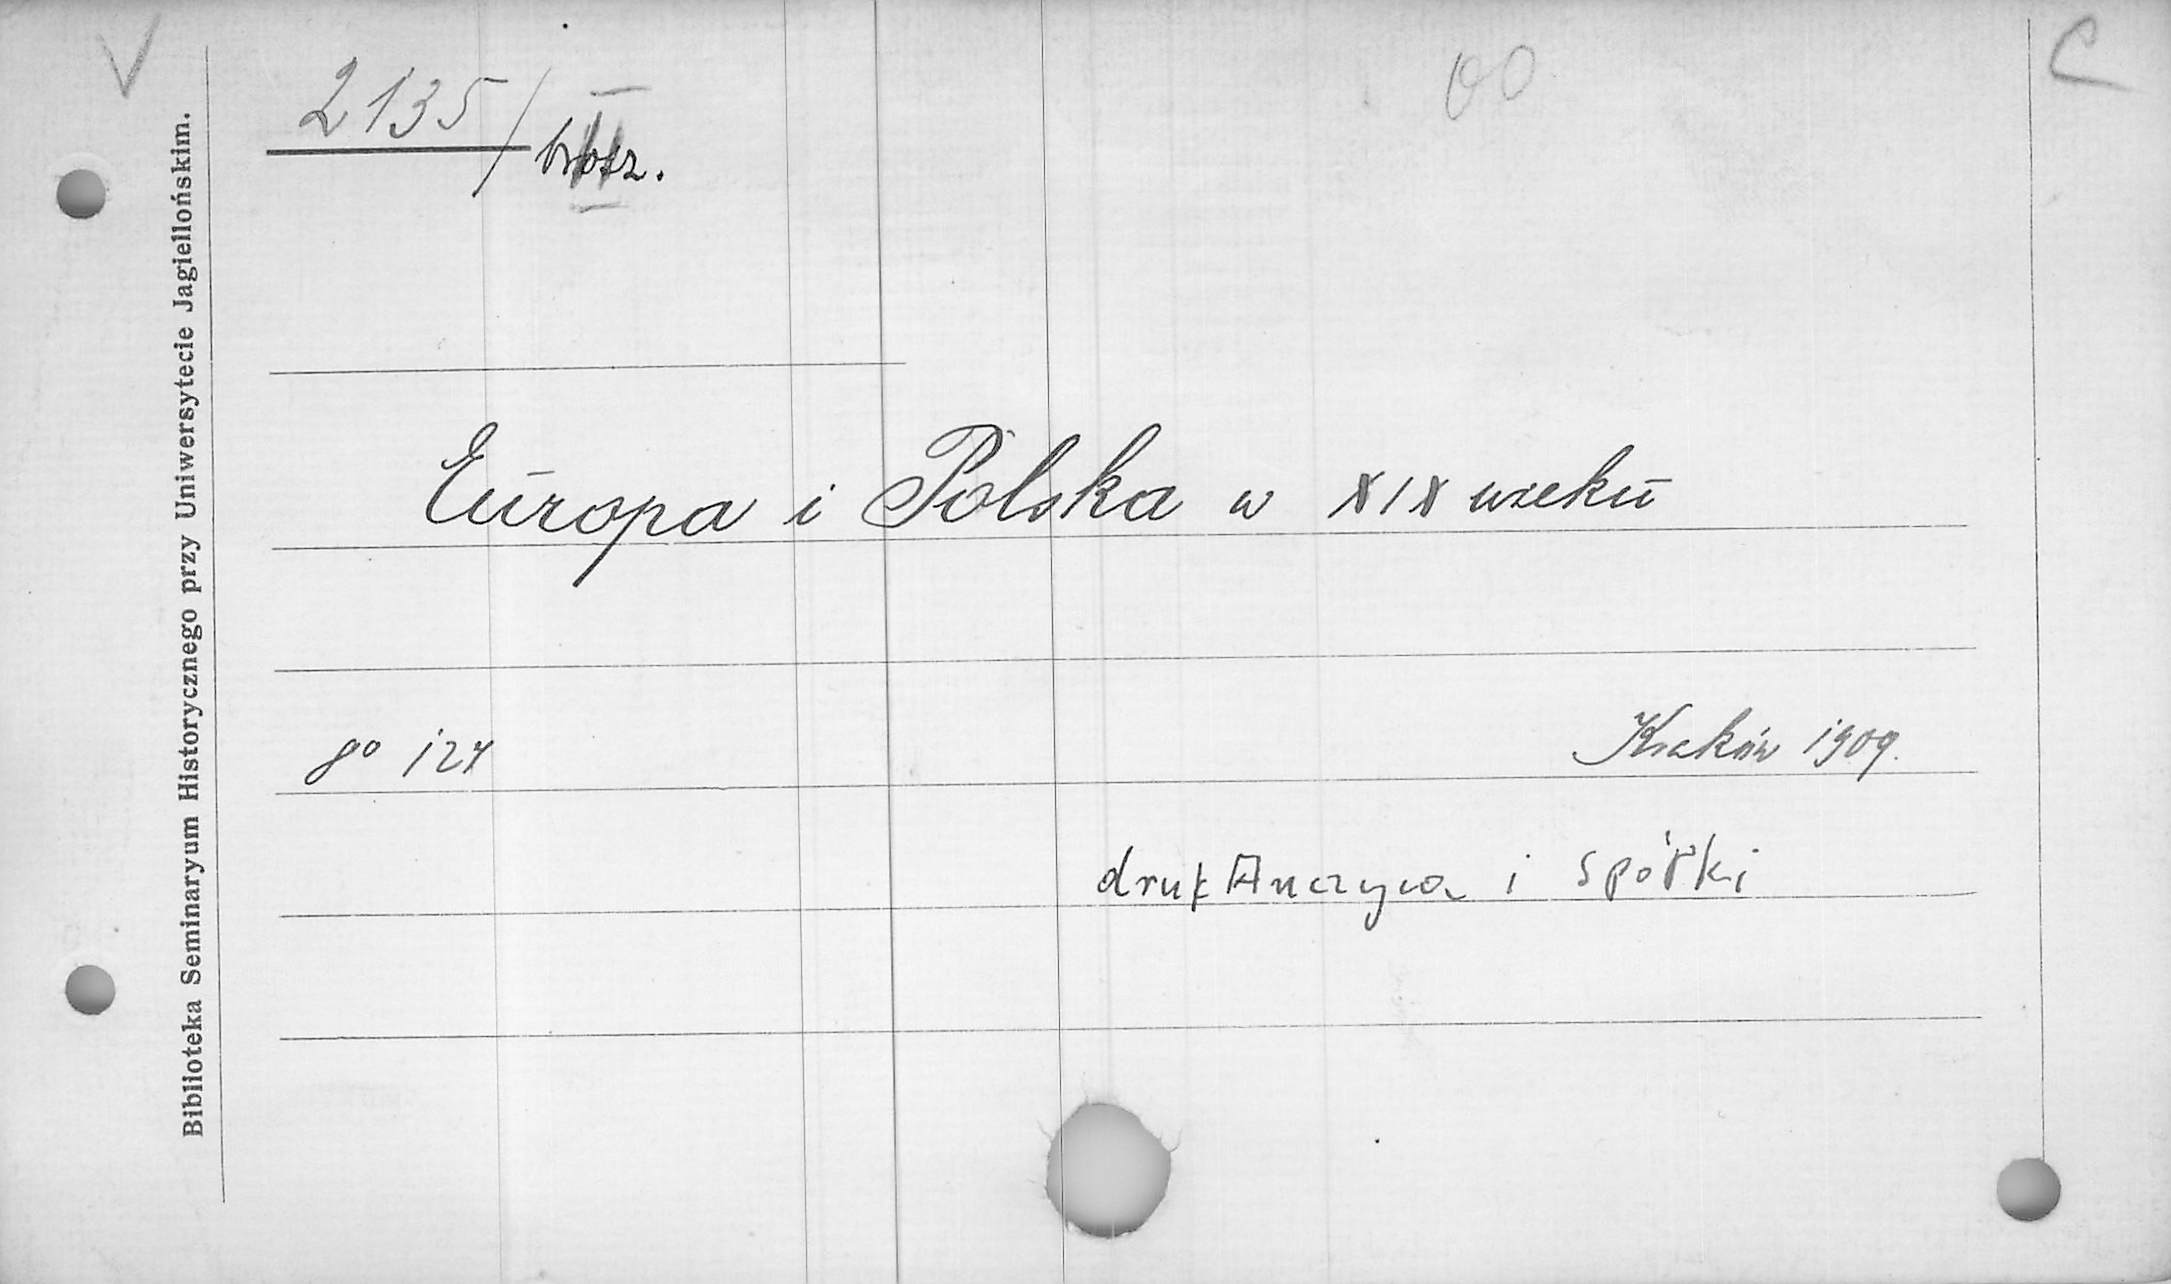 V
C
00
2135/brosz.
Biblioteka Seminaryum Historycznego przy Uniwersytecie Jagiellońskim.
Europa i Polska w XIX wieku
8o 124
Kraków 1909.
druk Anczyca i spółki